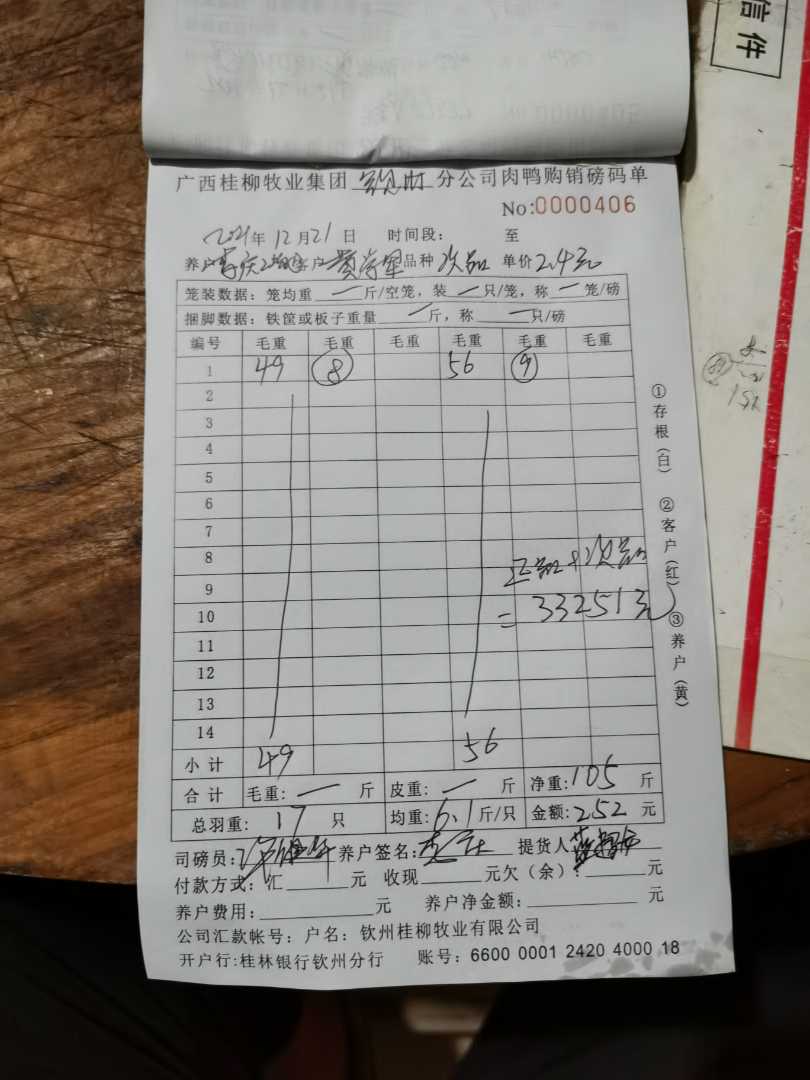 信件
广西桂柳牧业集团 分公司肉鸭购销磅码单
No:0000406
2021年12月21日 时间段: 至
养户 客户 品种 次品 单价 2.4元
笼装数据: 笼均重 一 斤/空笼, 装 一 只/笼, 称 一 笼/磅
捆脚数据: 铁筐或板子重量 一 斤, 称 一 只/磅
编号 毛重 毛重 毛重 毛重 毛重 毛重
1 49 8 56 9
2
3
4
5
6
7
8
9
10
11
12
13
14
正品+次品
=33251元
小计 49 56
合计 毛重: 一 斤 皮重: 一 斤 净重: 105 斤
总羽重: 17 只 均重: 6.1 斤/只 金额: 252 元
司磅员: 养户签名: 提货人
付款方式: 汇 元 收现 元欠(余): 元
养户费用: 元 养户净金额: 元
公司汇款帐号: 户名: 钦州桂柳牧业有限公司
开户行:桂林银行钦州分行 账号: 6600 0001 2420 4000 18
①存根(白) ②客户(红) ③养户(黄)